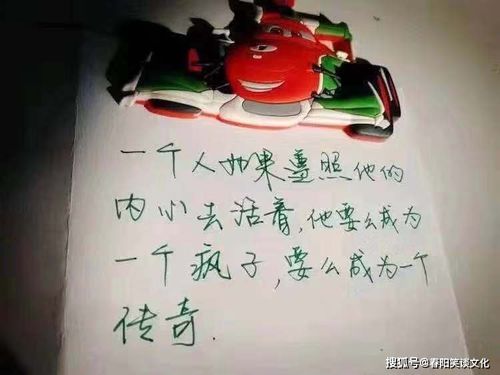 一个人如果遵照他的
内心去活着,他要么成为
一个疯子,要么成为一个
传奇.
搜狐号@春阳笑谈文化